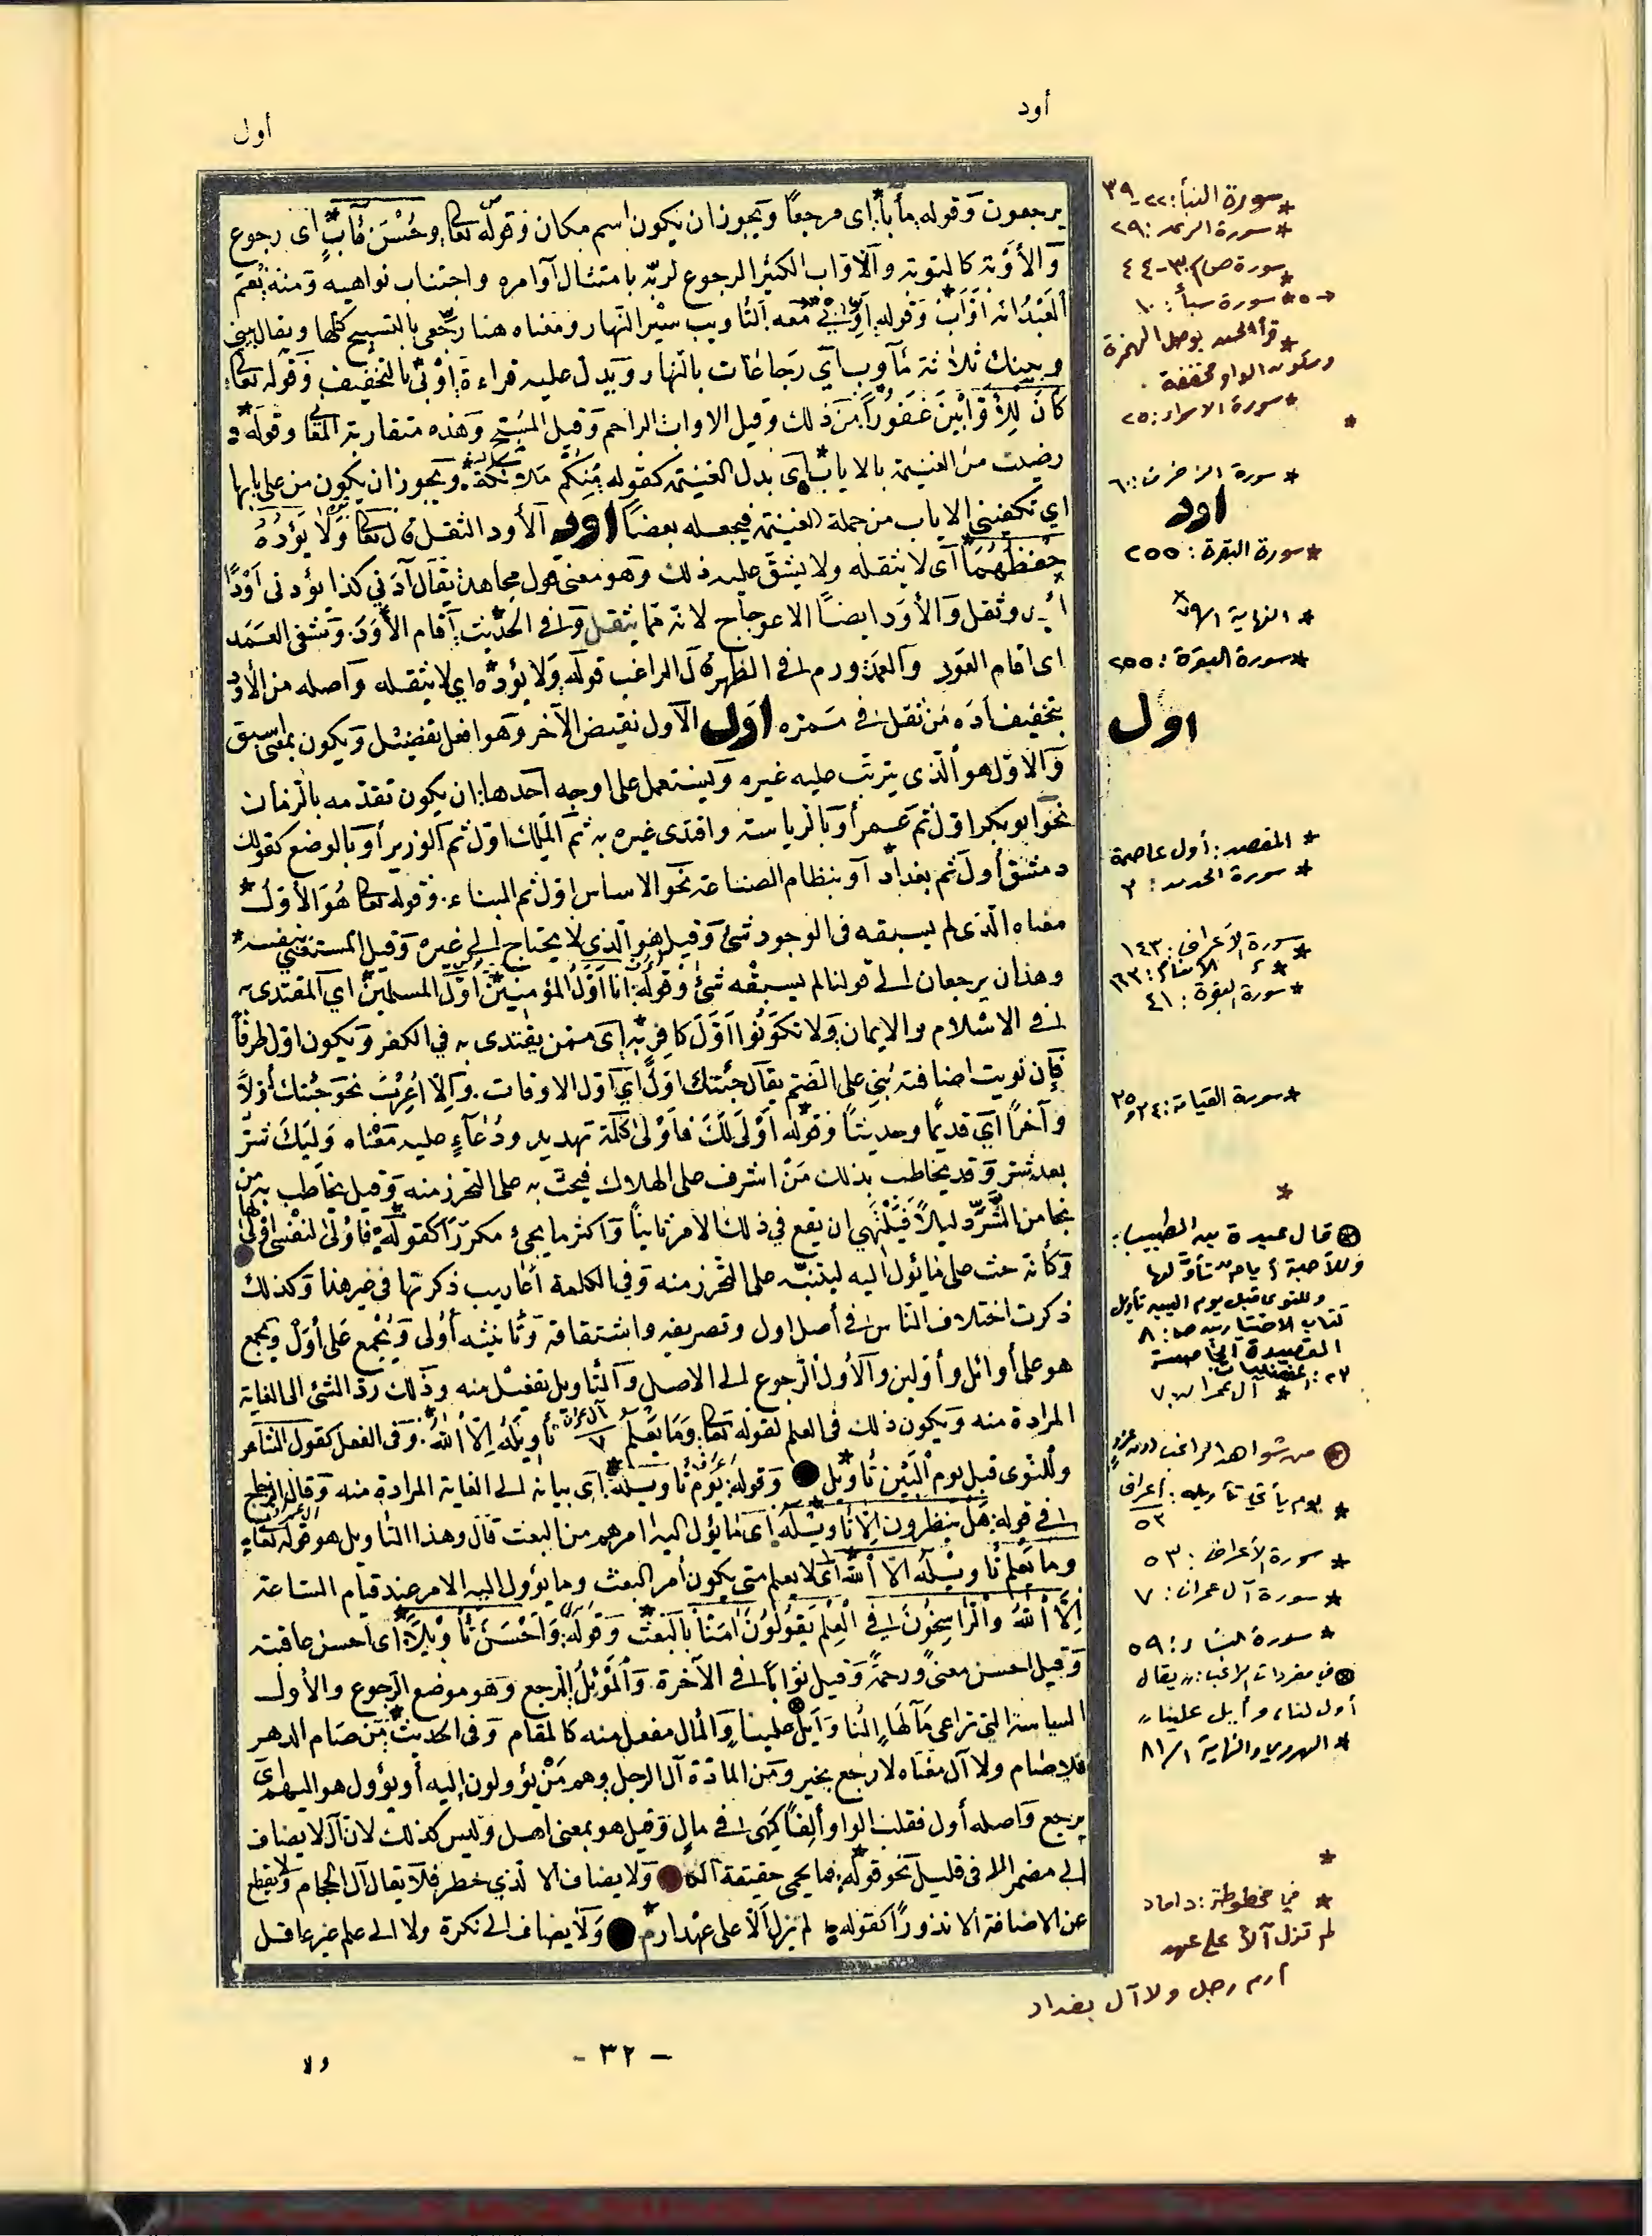 أود
أول
يرجعون وقوله مآباً أى مرجعًا ويجوز ان يكون اسم مكان وقوله تعا وحُسْنَ مَآبٍ اى رجوع
وَالأوْبَة كالتوبة والأوّاب الكثير الرجوع لربّه بامتثال أوامره واجتناب نواهيه ومنه نِعْمَ
الْعَبْدُ انه أَوَّابٌ وقوله أوِّبِي مَعَه التأويب سَيْر النّهار ومعناه هنا رجّعى بالتسبيح ويقال بينى
وبينك ثلاثة مآوب أي رَجَاعَات بالنهار ويدل عليه قراءة أُوْبى بالتخفيف وقوله تعا
كانَ لِلأَوَّابِينَ غَفُورًا من ذلك وقيل الاواب الراحم وقيل المُسَبِّح وهذه متقاربة المعا وقوله و
رضيت من الغنيمة بالاياب أى بدل الغنيمة كقوله مِنكُمْ مَلائِكَة ويجوز ان يكون من على بابها
اي تكفينى الاياب من جملة الغنيمة فيجعله بعضًا اود الأود الثقل قال تعا وَلَا يَؤُدُهُ
حِفْظُهُمَا أى لا يثقله ولا يشق عليه ذلك وهو معنى قول مجاهد يقال آدَني كذا يؤدنى أَوْدًا
أي وثقل وَالأَوَد ايضًا الاعوجاج لانّه مما يثقل وفى الحديث أقام الأَوَدَ وشفى العَمَد
اى اقام العوج والعمد ورم فى الظهر قال الراغب قوله وَلَا يَؤُدُه اي لا يثقله وأصله من الأود
بتخفيف أدَه مَن ثقل فى مَمَرّه اول الأول نقيض الآخر وهو افعل تفضيل ويكون بمعنى اسبق
وَالاول هو الّذى يترتب عليه غيره ويستعمل على اوجه أحدها ان يكون تقدمه بالزمان
نحو ابو بكر اول ثم عمر أو بالرياسة واقتدى غيره به ثم المَلِك اول ثم الوزير أو بالوضع كقولك
دمشق أول ثم بغداد أو بنظام الصناعة نحو الاساس اول ثم البناء وقوله تعا هُوَ الأوّل
معناه الّذى لم يسبقه فى الوجود شئ وقيل هو الّذى لا يحتاج إلى غيره وقيل المستغنى بنفسه
وهذان يرجعان إلى قولنا لم يسبقْه شئ وقوله أنا أَوَّلُ المؤمنين أوّل المسلمين أي المقتدى به
فى الاسْلام والايمان وَلا تكُونُوا أَوَّلَ كافِرٍ بِه أى ممن يقتدى به في الكفر ويكون اول ظرفًا
فإن نويت اضافته بُنِي على الضم يقال جئتك اوّل أي اول الاوقات وإلا أُعْرِبَ نحو جئتك أولاً
وآخراً أي قديمًا وحديثًا وقوله أَوْلَى لَكَ فَأَوْلى كلمة تهديد ودُعاء عليه معناه وَلِيَكَ شرّ
بعد شر وقد يخاطب بذلك مَنْ اشرف على الهلاك فيحث به على التحرز منه وقيل يخاطب به من
نجا من الشّر ذليلاً فينتهي ان يقع في ذلك الامر ثانياً وَاكثر ما يجئ مكررًا كقوله فأولى لنفسى اولى لها
وكأنه حث على ما يئول اليه ليتنبّه على التحرز منه وفي الكلمة أعاريب ذكرتها في غير هذا وكذلك
ذكرت اختلاف النّاس فى أصل اول وتصريفه واشتقاقه وتأنيثه أُولى ويُجْمع عَلى أُوَلٌ ويجمع
هو على أوائل وأوّلين والأول الرجوع إلى الاصل والتأويل تفعيل منه وذلك ردّ الشئ الى الغاية
المرادة منه ويكون ذلك فى العلم لقوله تعا وَمَا يَعْلَمُ تأويلَهُ إِلاّ اللهُ وفى الفعل كقول الشاعر
آل عمران ٧
وللنوى قبل يوم الْبَيْنِ تأويل وَقوله يَوْمَ تَأويلُهُ أى بيانه الى الغاية المرادة منه وقال الزجاج
فى قوله هَلْ ينظرون إلاّ تأويلَهُ أى ما يؤل اليه امرهم من البعث قال وهذا التأويل هو قوله تعا
وما يَعْلم تأويْلَهُ الاّ اللهُ أى لا يعلم متى يكون أمر البعث وما يؤول اليه الامر عند قيام السّاعة
إلاَّ اللهُ وَالرّاسِخُونَ فِي الْعِلْمِ يَقُولُونَ آمَنَّا بالبَعث وَقوله وَأَحْسَنُ تَأْوِيلاً أى احسن عاقبة
وقيل احسن معنىً ورحمةً وقيل ثوابًا فى الآخرة وَالْمَوْئِلُ المرجع وهو موضع الرجوع والأول
السياسة التى تراعى مَآلَها إلنا وَإيلَ علينا وَالمآل مفعل منه كالمقام وفى الحديث مَن صَام الدهر
فلا صَام ولا آل معناه لا رجع بخير ومن المادّة آل الرجل وهم مَنْ يؤولون إليه أو يؤول هو اليهم أى
يرجع وَاصله أول فقلبت الواو ألِفاً كهى فى مالٍ وقيل هو بمعنى اهل وليس كذلك لان آل لا يضاف
إلى مضمر الا فى قليل نحو قوله فما يحمى حقيقة آلكا وَلا يضاف الا لذي خطر فلا يقال آل الحجام ولا يقطع
عن الاضافة الا نذورًا كقوله لم يزل آلا على عهد ارم وَلا يضاف إلى نكرة ولا الى علم غير عاقل
* سورة النبأ: ٢٢-٣٩
* سورة الرعد: ٢٩
* سورة ص ٣٠-٤٤
* سورة سبأ: ١٠
* قرأ الحسن بوصل الهمزة
وسكون الواو مخففة.
* سورة الاسراء: ٢٥
* سورة الزخرف: ٦٠
اود
* سورة البقرة: ٢٥٥
* النهاية ١/٧٩
* سورة البقرة: ٢٥٥
اول
* المقصد: أول عاصمة
* سورة الحديد: ٣
* سورة الأعراف: ١٤٣
* " الأنعام: ١٦٣
* سورة البقرة: ٤١
* سورة القيامة: ٣٤ و ٣٥
*
⊗ قال عبدة بن الطبيب:
وللأحبة أيام تأوّلها
وللنوى قبل يوم البين تأويل
كتاب الاختيارين ص: ٨
القصيدة الخامسة
* آل عمران: ٧
⊗ من شواهد الراغب
* يوم يأتي تأويله: أعراف
٥٣
* سورة الأعراف: ٥٣
* سورة آل عمران: ٧
* سورة النساء: ٥٩
⊗ في مفردات الراغب: " يقال
أول لنا، وأيل علينا "
* الهروي والنهاية ١/٨١
*
* في مخطوطة: داماد
لم تزل آلاً على عهد
أرم رجل ولا آل بغداد
- ٣٢ -
ولا